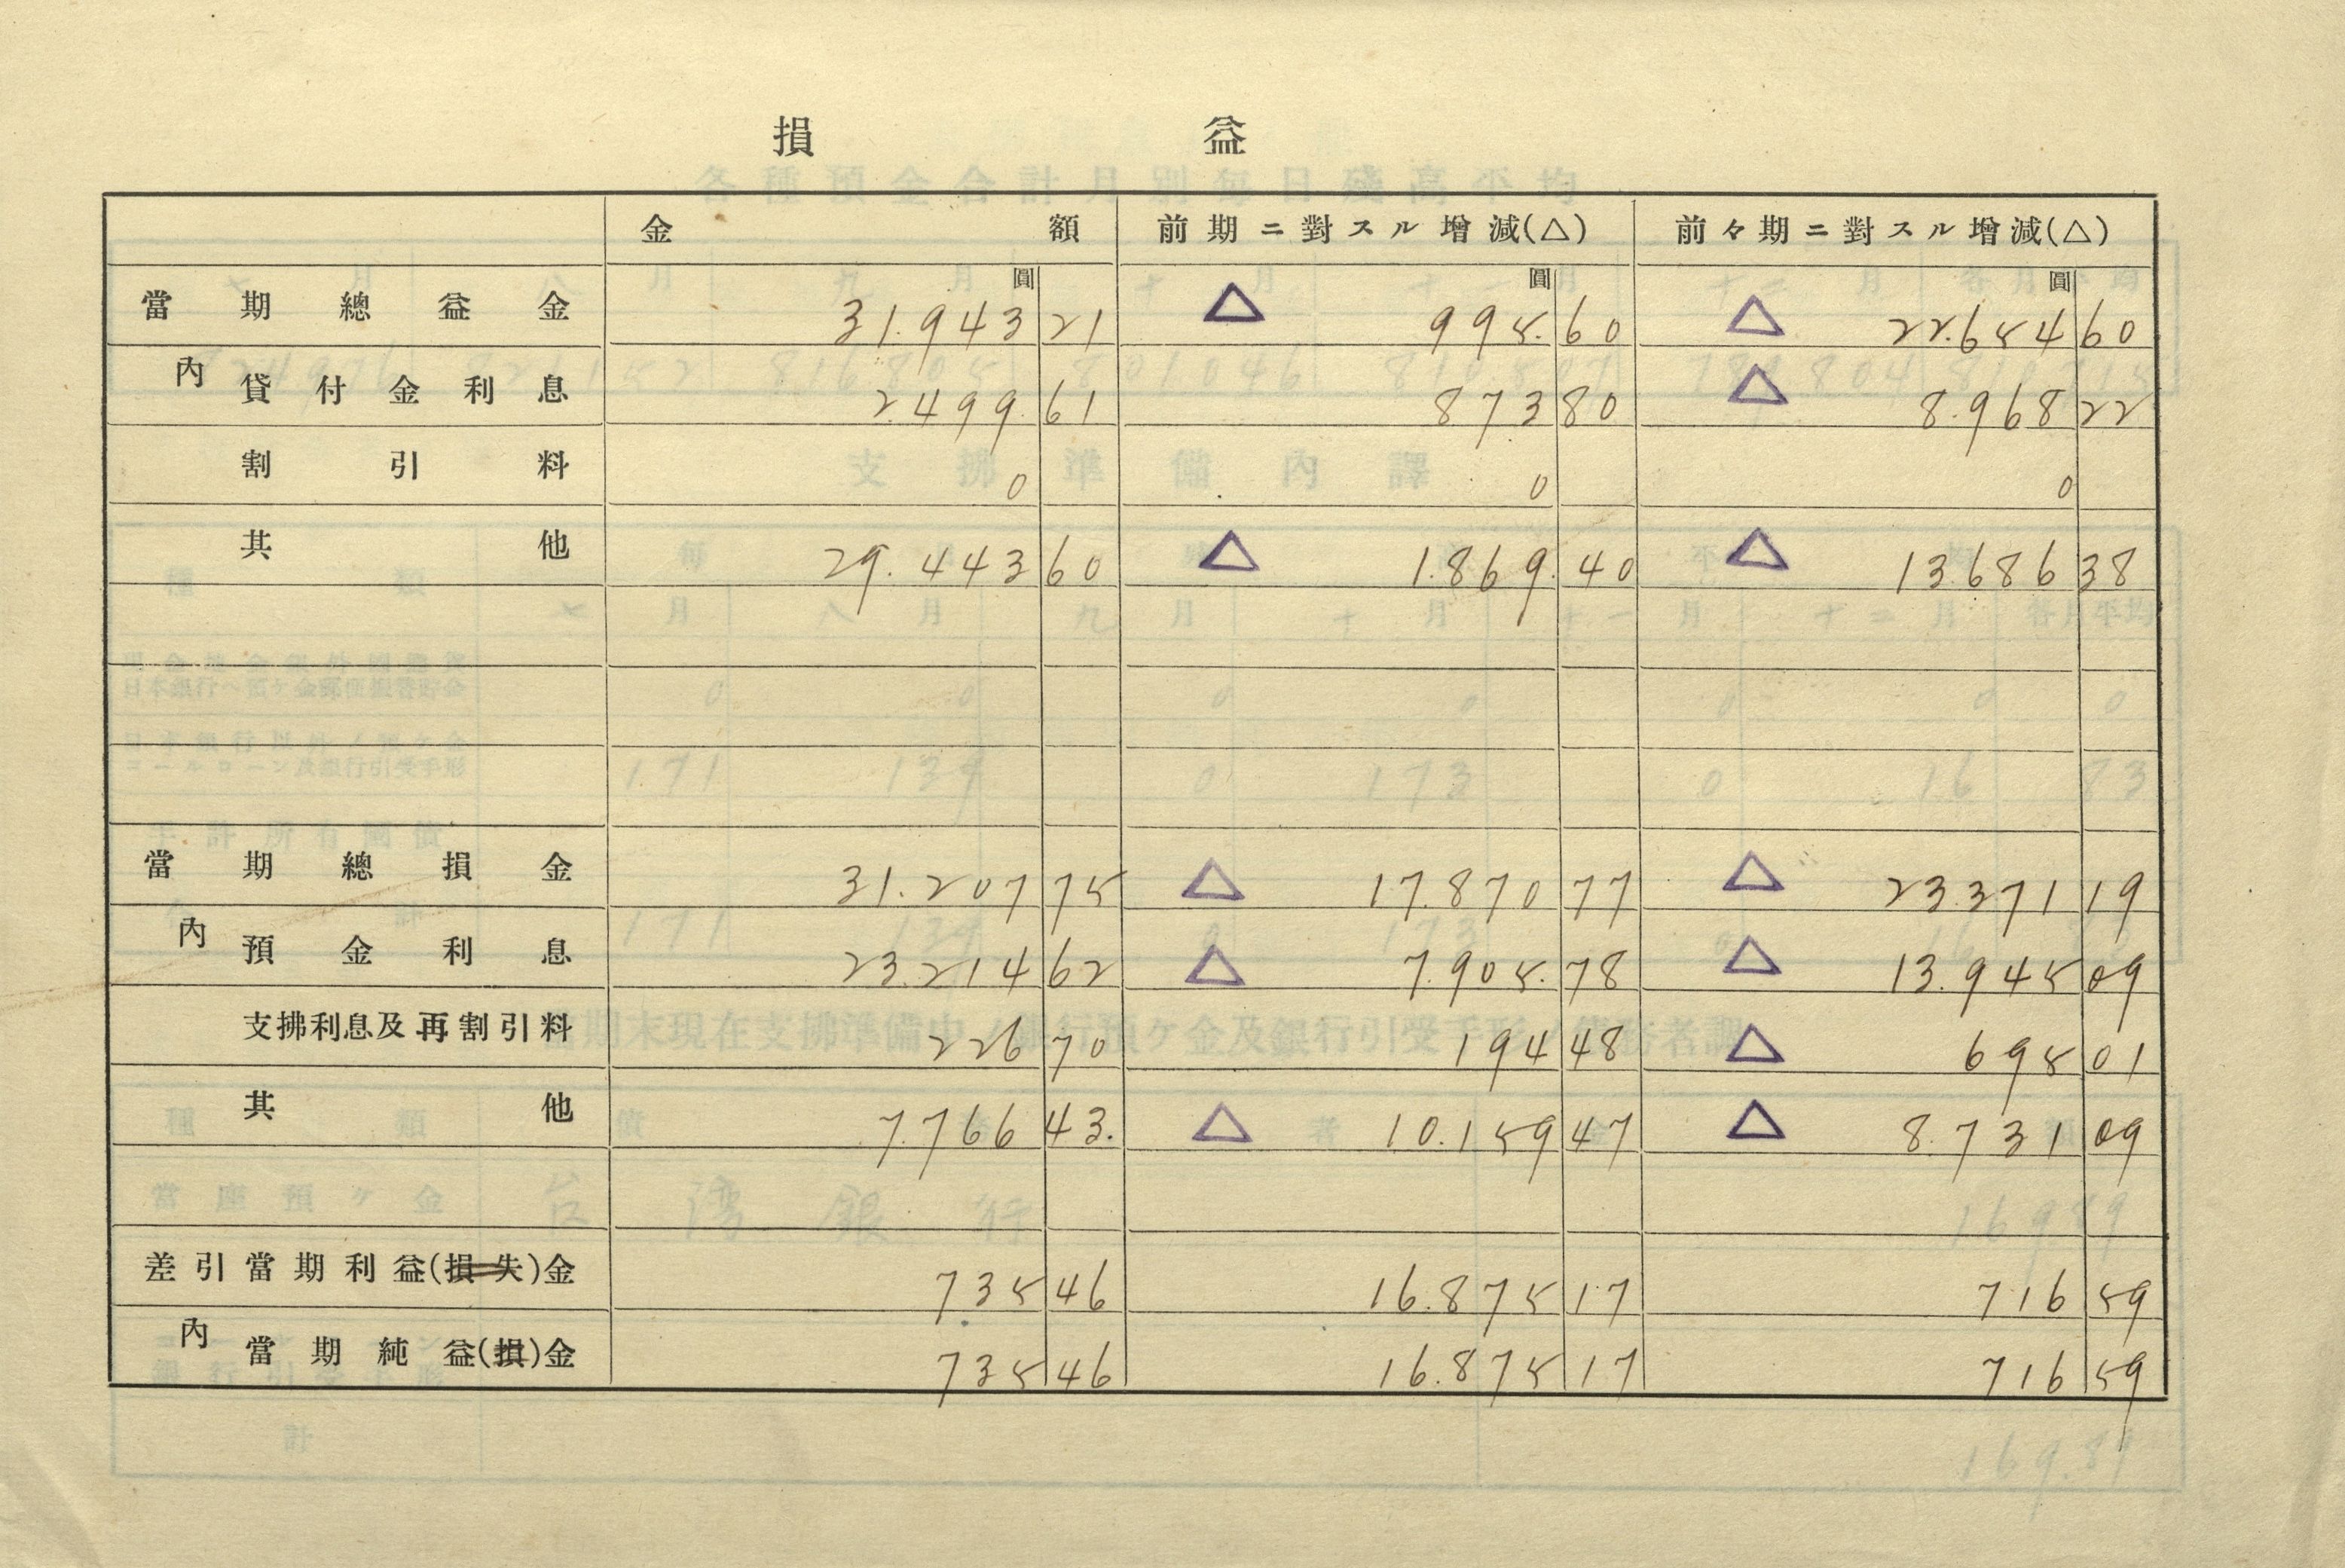 損益
金額 前期ニ對スル增減(△) 前々期ニ對スル增減(△)
圓 圓 圓
當期總益金 31.943 21 △ 995.60 △ 22.654 60
內 貸付金利息 2.499 61 873 80 △ 8.968 22
割引料 0 0 0
其他 29.443 60 △ 1.869.40 △ 13.686 38
當期總損金 31.207 75 △ 17.870 77 △ 23.371 19
內 預金利息 23.214 62 △ 7.905.78 △ 13.945 09
支拂利息及再割引料 226 70 194 48 △ 695 01
其他 7.766 43. △ 10.159 47 △ 8.731 09
差引當期利益(損失)金 735 46 16.875 17 716 59
內 當期純益(損)金 735 46 16.875 17 716 59